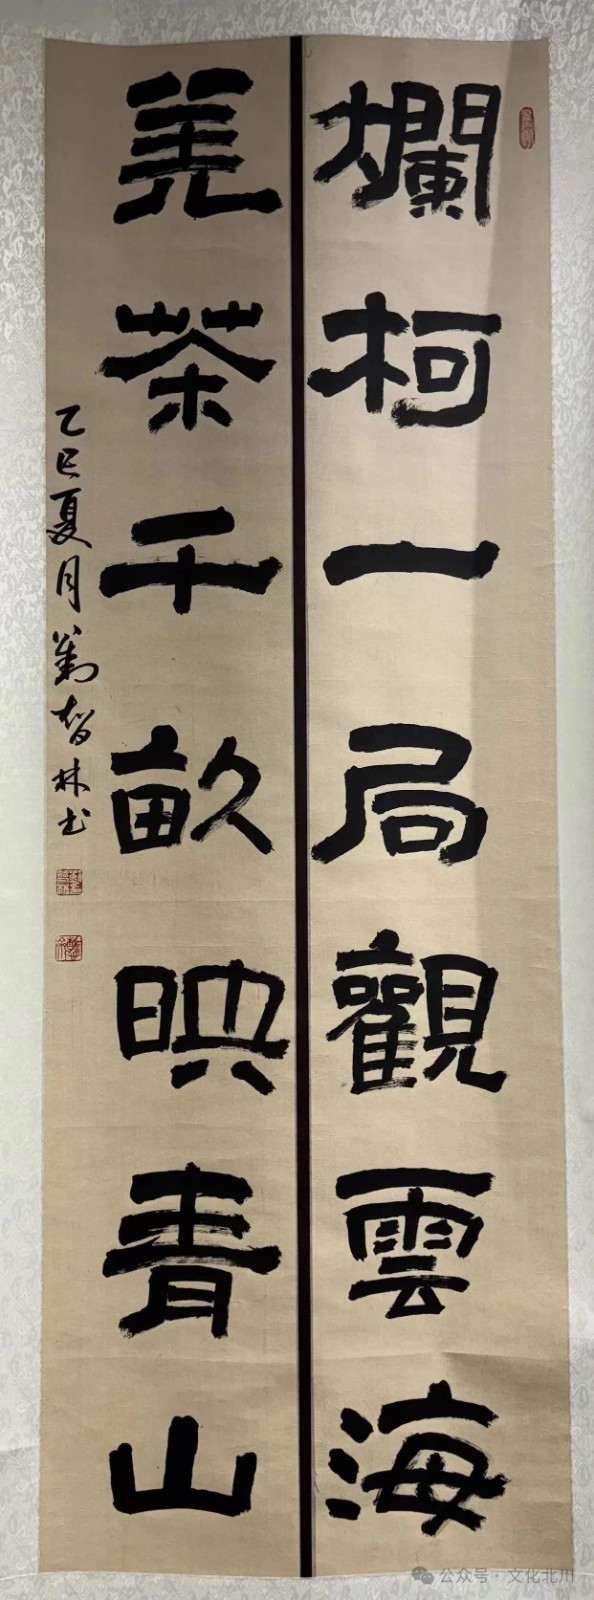 爛柯一局觀雲海
羌茶千畝映青山
乙巳夏月劉智林书
公众号·文化北川